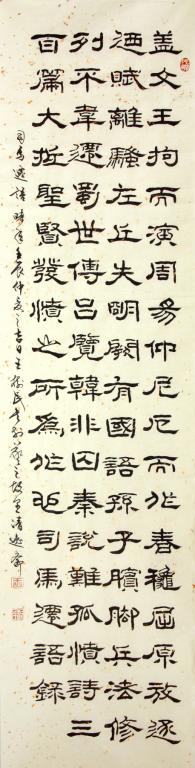 盖文王拘而演周易仲尼厄而作春穐屈原放逐
迺賦離騷左丘失明闕有國語孫子臏脚兵法修
列不韋遷蜀世傳吕覽韓非囚秦說難孤憤詩三
百篇大抵聖賢發憤之所爲作也司馬遷語錄
司馬遷語 壬辰仲夏之吉日王